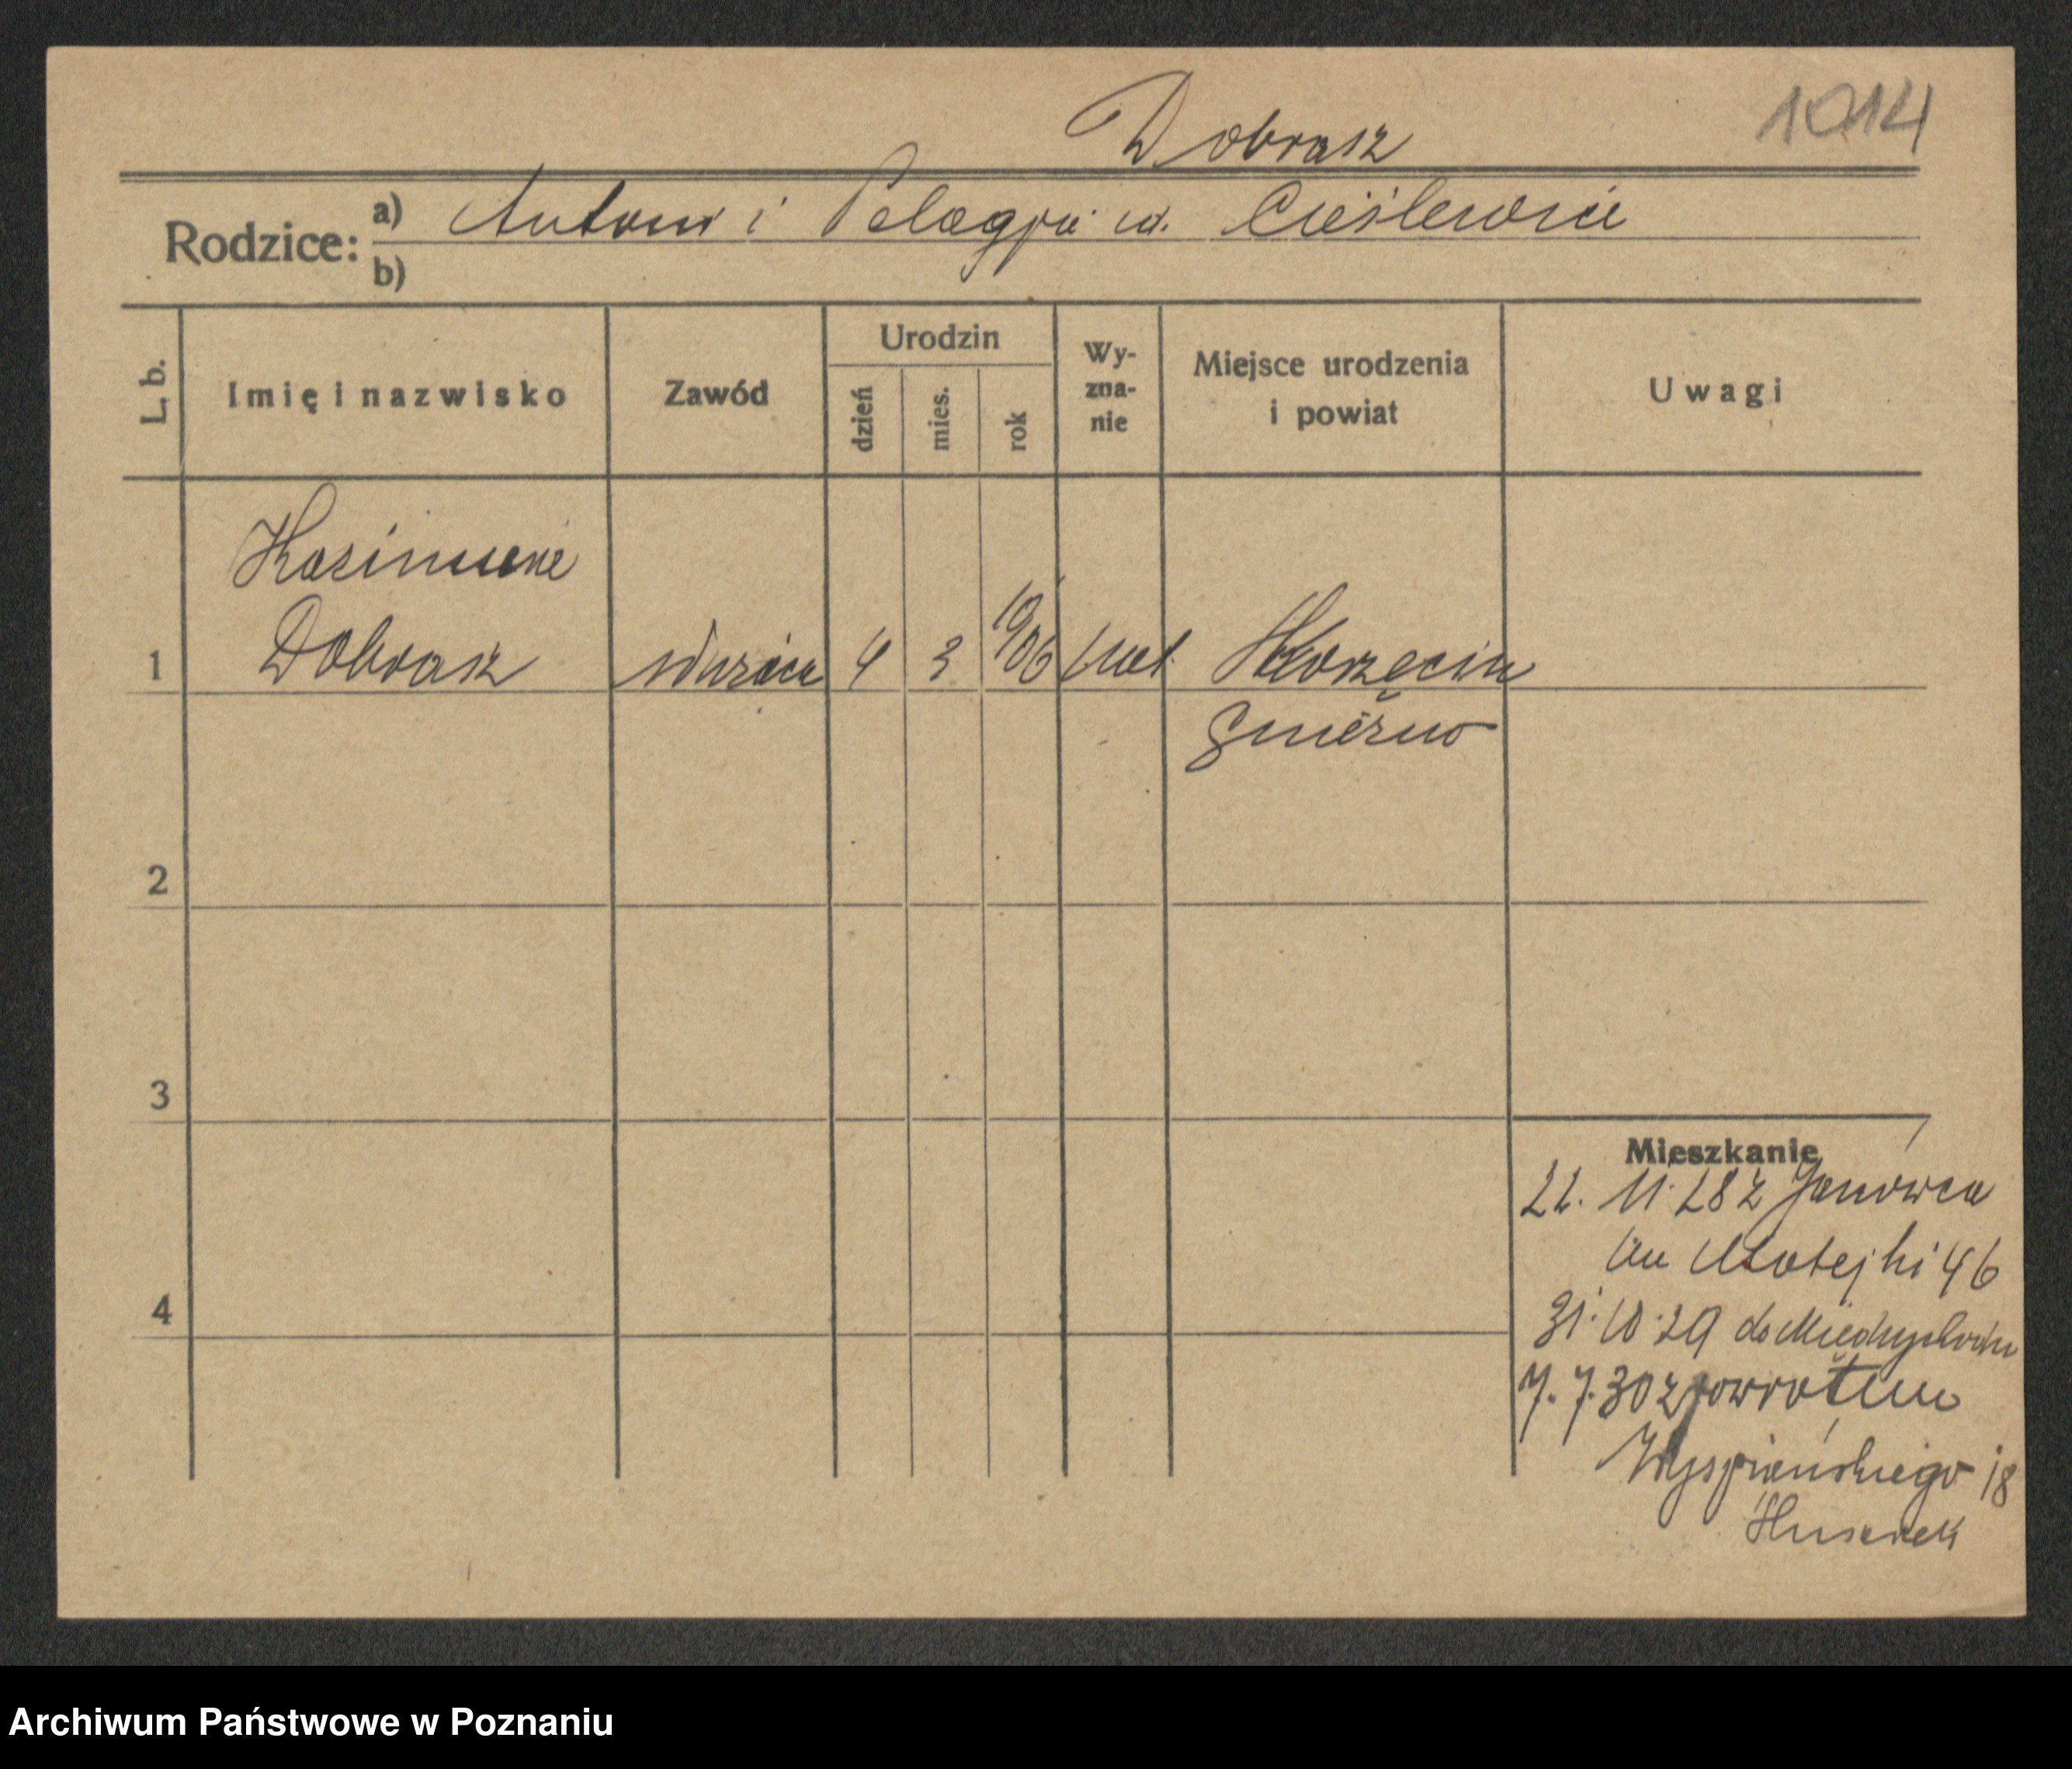 1014
Dobrasz
Rodzice: a) Antoni i Pelagja ur. Cieślewicz
b)
L. b. Imię i nazwisko Zawód Urodzin dzień mies. rok Wy-zna-nie Miejsce urodzenia i powiat Uwagi
Kazimiera
1 Dobrasz służąca 4 3 1906 kat.
Gniezno
2
3
4
Mieszkanie
22. 11. 28 z Janówca
Matejki 46
31. 10. 29 do Międzychodu
7. 7. 30 z powrotem
Wyspiańskiego 18
Archiwum Państwowe w Poznaniu